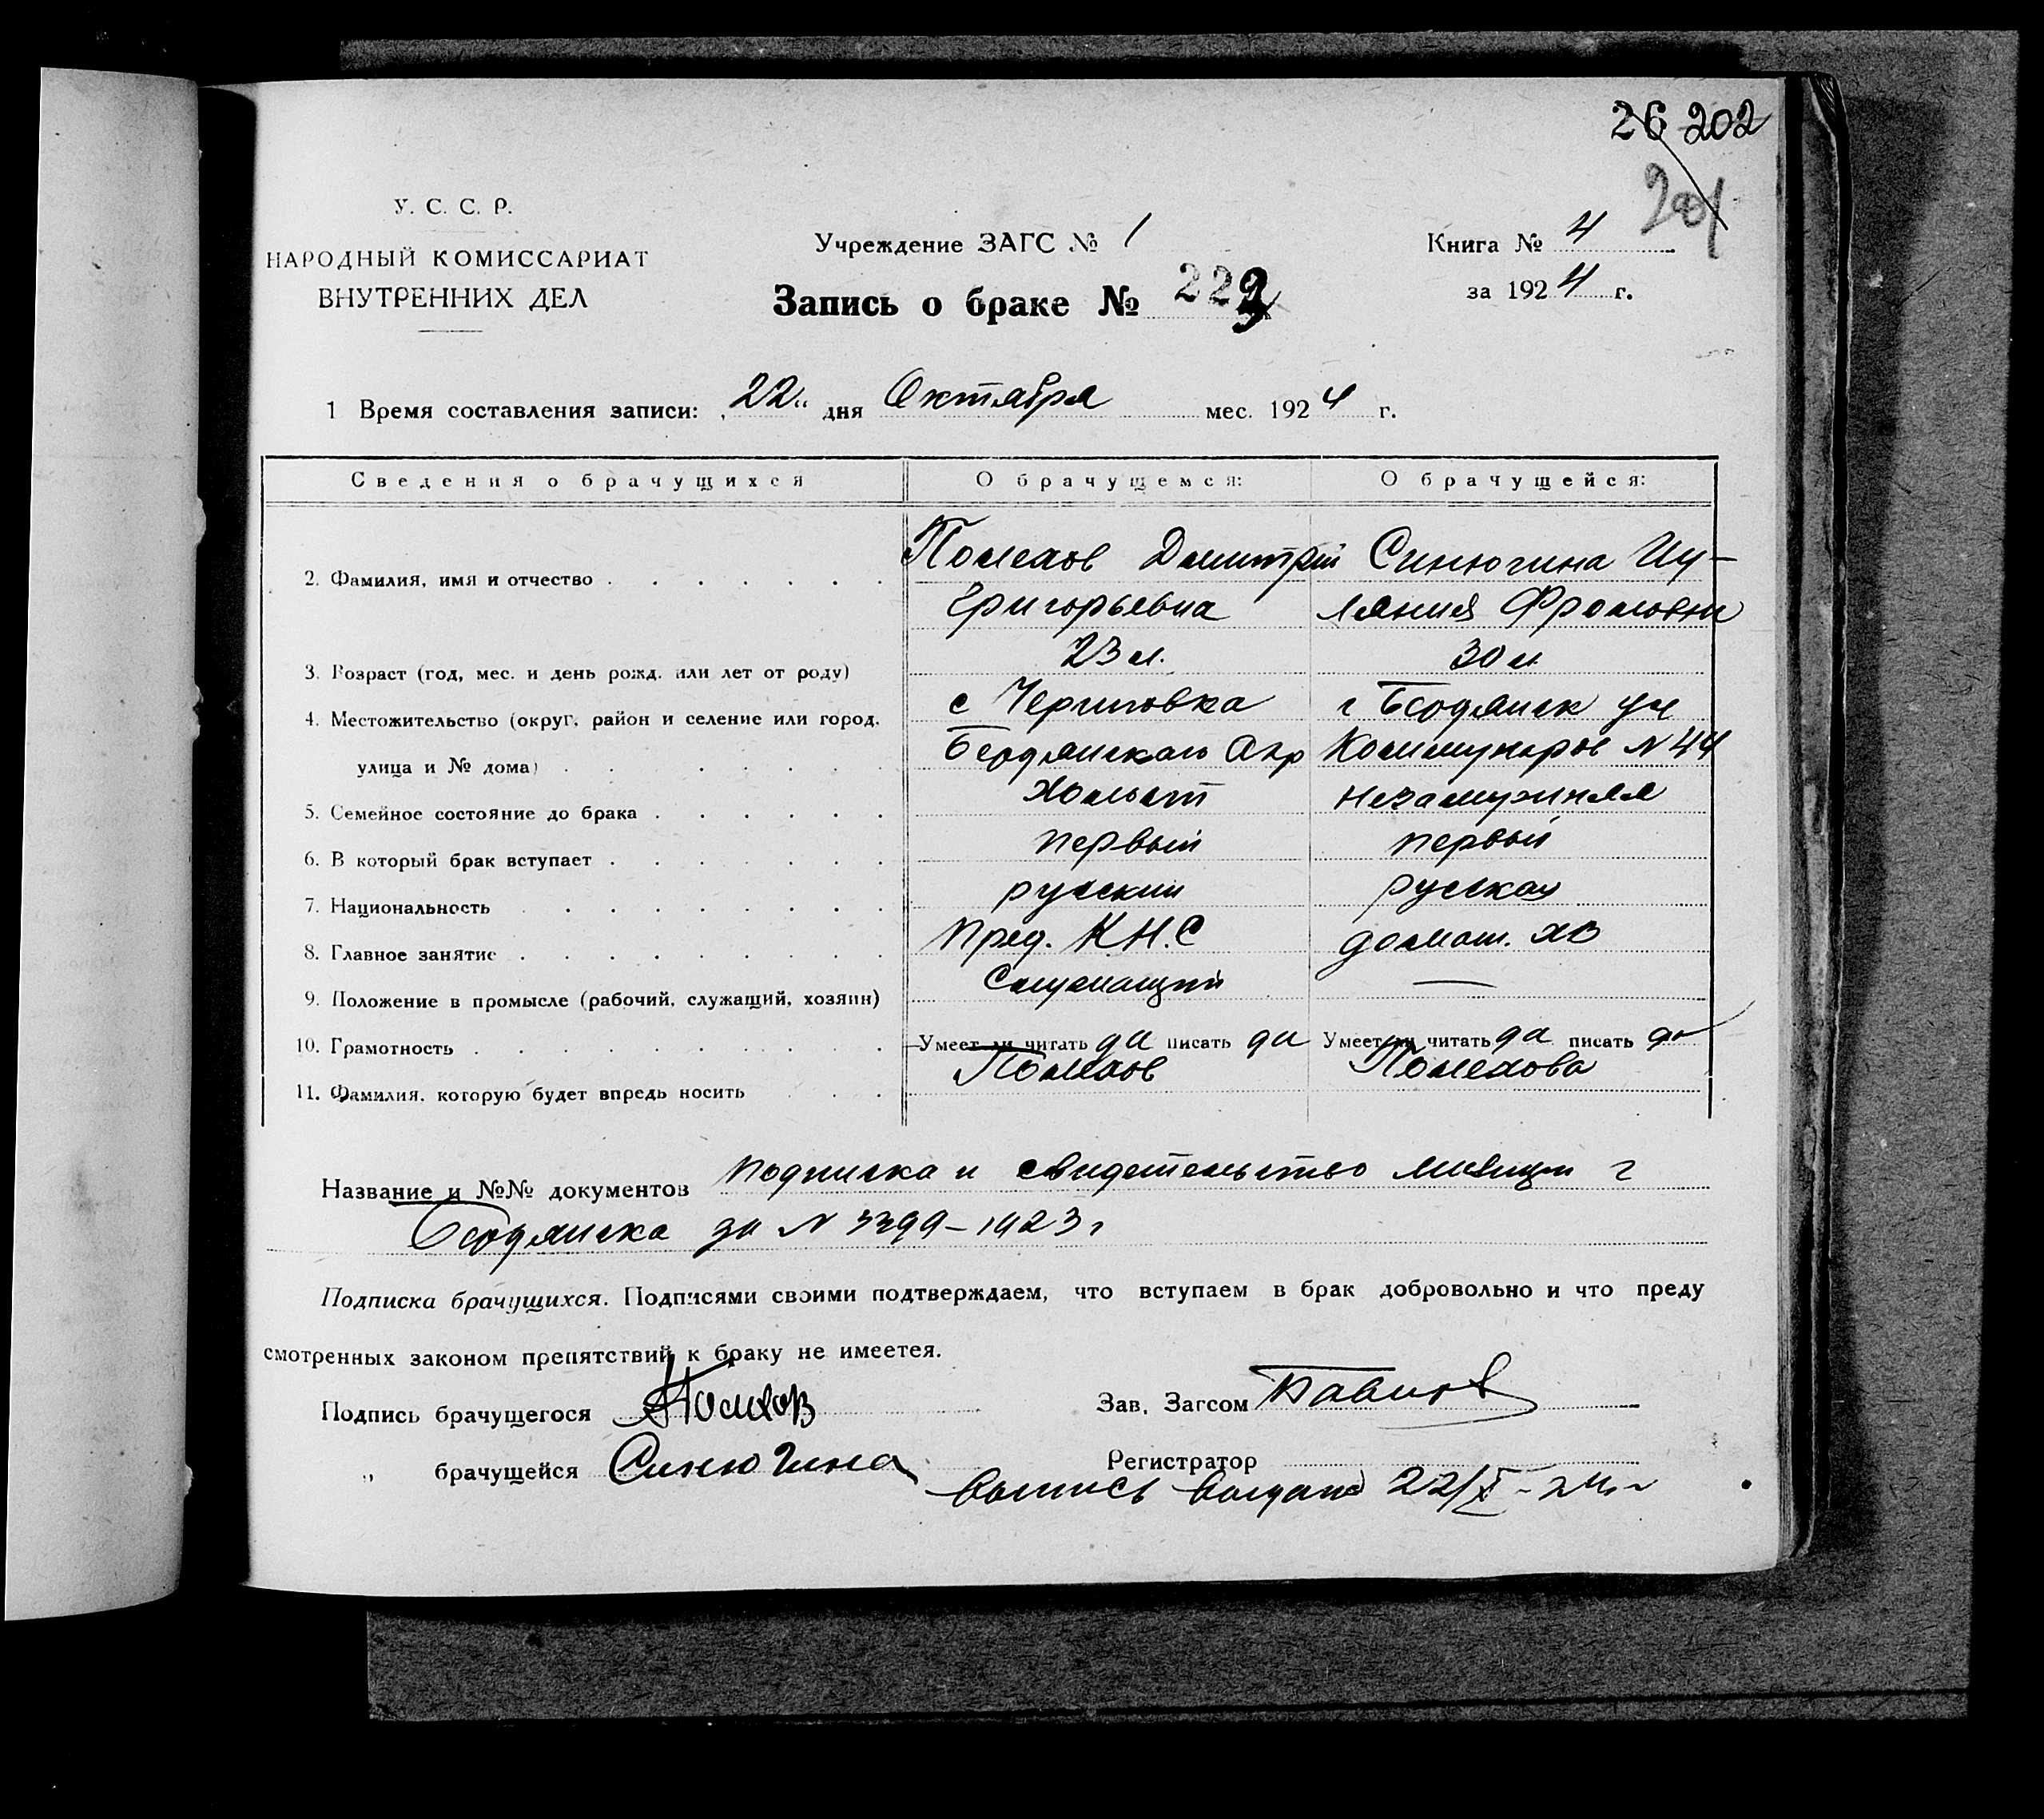 26 202
201
У. С. С. Р.
НАРОДНЫЙ КОМИССАРИАТ
ВНУТРЕННИХ ДЕЛ
Учреждение ЗАГС № 1
Запись о браке № 223
Книга № 4
за 1924 г.
1 Время составления записи: „22“ дня Октября мес. 1924 г.
Сведения о брачущихся О брачущемся: О брачущейся:
2. Фамилия, имя и отчество Помехов Дмитрий Синюгина Иу-
Григорьевич лания Фроловна
3. Возраст (год, мес. и день рожд. или лет от роду) 23 л. 30 л
4. Местожительство (округ, район и селение или город, с Черниговка г Бердянск ул
улица и № дома) Бердянского Окр Коммунаров N 44
5. Семейное состояние до брака Холост незамужняя
6. В который брак вступает первый первый
7. Национальность русский русская
8. Главное занятие Пред. К.Н.С домаш. хо
9. Положение в промысле (рабочий, служащий, хозяин) Служащий —
10. Грамотность Умеет ли читать да писать да Умеет ли читать да писать да
11. Фамилия, которую будет впредь носить Помехов Помехова
Название и №№ документов подписка и свидетельство милиции г
Бердянска за N 3399-1923 г
Подписка брачущихся. Подписями своими подтверждаем, что вступаем в брак добровольно и что преду
смотренных законом препятствий к браку не имеется.
Подпись брачущегося Помехов Зав. Загсом
„ брачущейся Синюгина Регистратор
Выпись выдана 22/X-24 г